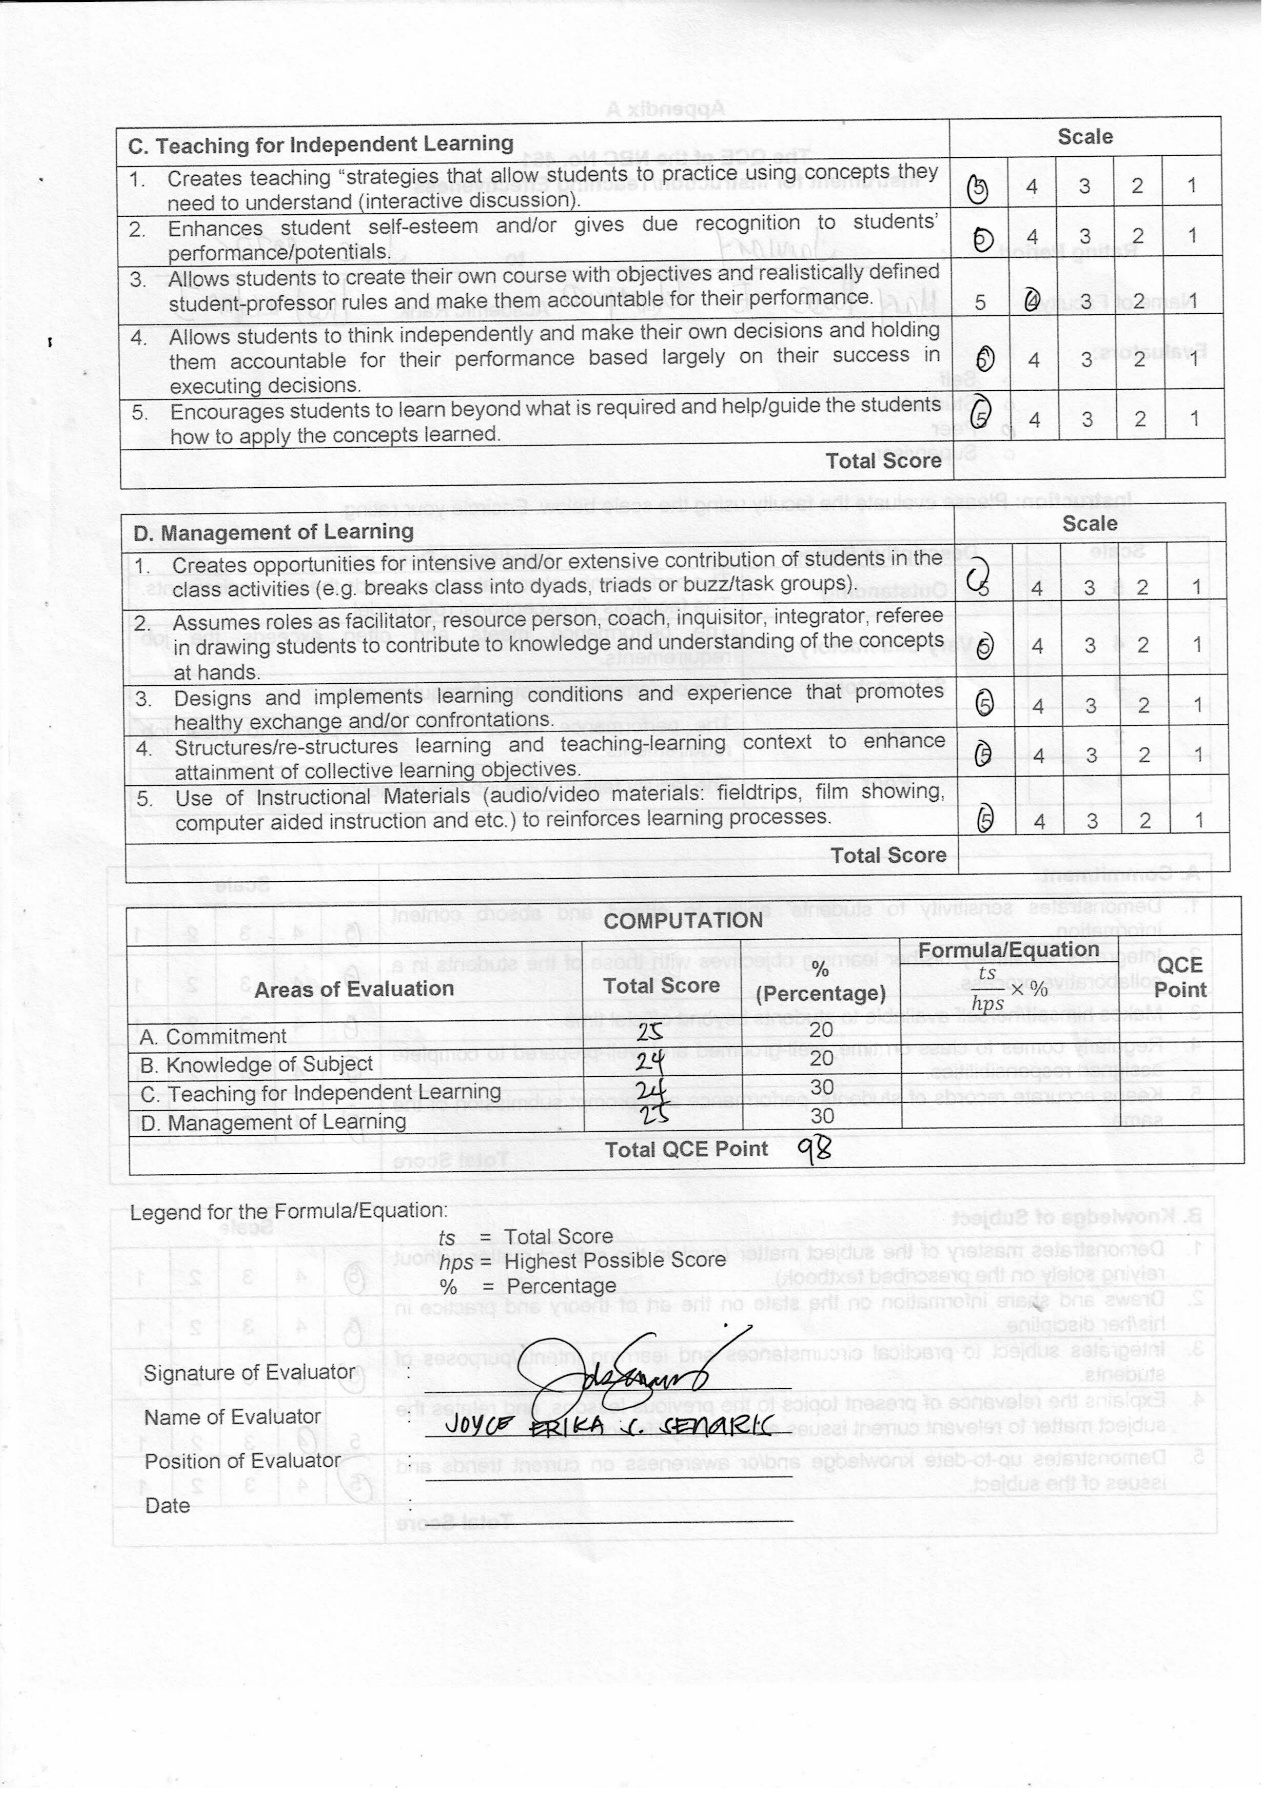 C. Teaching for Independent Learning Scale
1. Creates teaching “strategies that allow students to practice using concepts they
need to understand (interactive discussion). 5 4 3 2 1
2. Enhances student self-esteem and/or gives due recognition to students’
performance/potentials. 5 4 3 2 1
3. Allows students to create their own course with objectives and realistically defined
student-professor rules and make them accountable for their performance. 5 4 3 2 1
4. Allows students to think independently and make their own decisions and holding
them accountable for their performance based largely on their success in 5 4 3 2 1
executing decisions.
5. Encourages students to learn beyond what is required and help/guide the students
how to apply the concepts learned. 5 4 3 2 1
Total Score
D. Management of Learning Scale
1. Creates opportunities for intensive and/or extensive contribution of students in the
class activities (e.g. breaks class into dyads, triads or buzz/task groups). 5 4 3 2 1
2. Assumes roles as facilitator, resource person, coach, inquisitor, integrator, referee
in drawing students to contribute to knowledge and understanding of the concepts 5 4 3 2 1
at hands.
3. Designs and implements learning conditions and experience that promotes
healthy exchange and/or confrontations. 5 4 3 2 1
4. Structures/re-structures learning and teaching-learning context to enhance
attainment of collective learning objectives. 5 4 3 2 1
5. Use of Instructional Materials (audio/video materials: fieldtrips, film showing,
computer aided instruction and etc.) to reinforces learning processes. 5 4 3 2 1
Total Score
COMPUTATION
Areas of Evaluation Total Score % (Percentage) Formula/Equation ts/hps × % QCE Point
A. Commitment 25 20
B. Knowledge of Subject 24 20
C. Teaching for Independent Learning 24 30
D. Management of Learning 25 30
Total QCE Point 98
Legend for the Formula/Equation:
ts = Total Score
hps = Highest Possible Score
% = Percentage
Signature of Evaluator :
Name of Evaluator : JOYCE ERIKA S. SENARIC
Position of Evaluator :
Date :